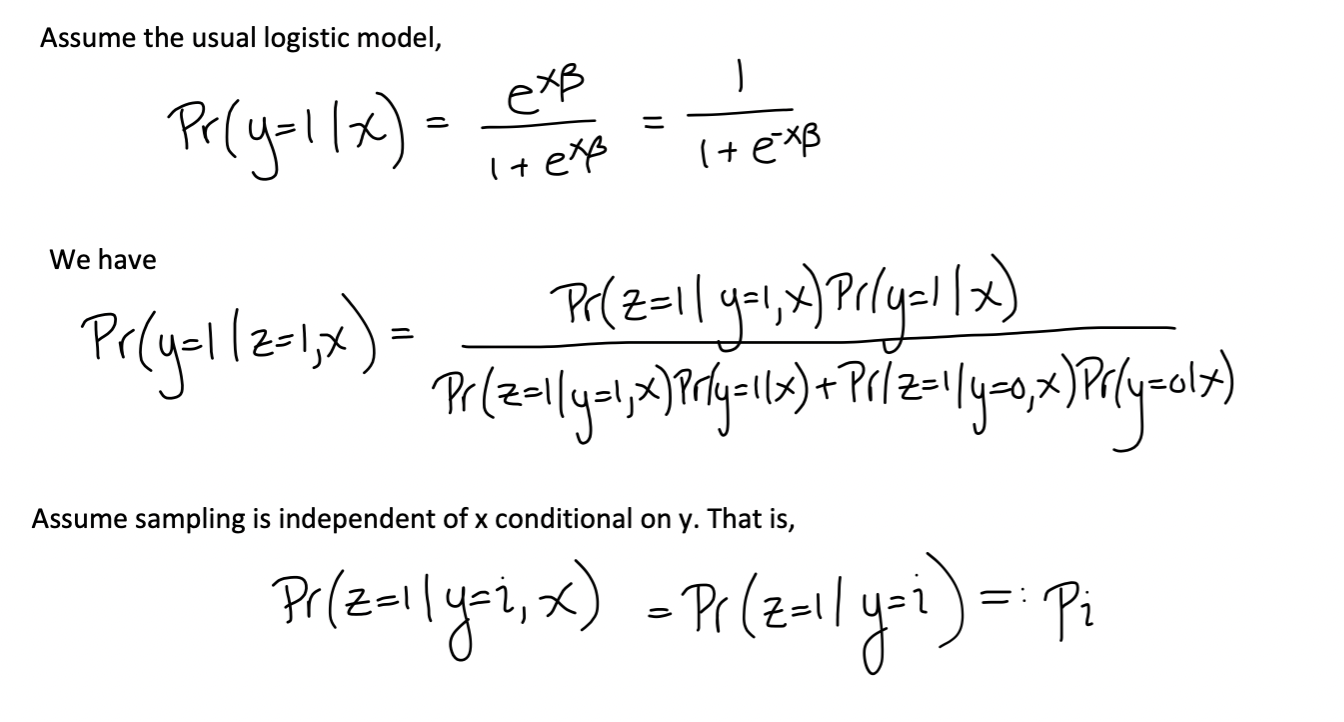 Assume the usual logistic model,
Pr(y=1|x) = e^{xβ} / (1 + e^{xβ}) = 1 / (1 + e^{-xβ})
We have
Pr(y=1|z=1,x) = Pr(z=1|y=1,x)Pr(y=1|x) / (Pr(z=1|y=1,x)Pr(y=1|x) + Pr(z=1|y=0,x)Pr(y=0|x))
Assume sampling is independent of x conditional on y. That is,
Pr(z=1|y=i, x) = Pr(z=1|y=i) =: p_i